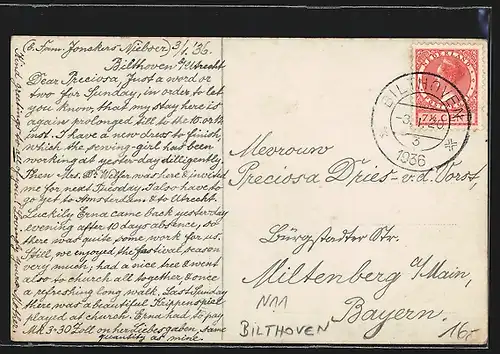 (b. Fam. Jonckers Nieboer) 3/1.'36.
Bilthoven b/Utrecht.
Dear Preciosa, Just a word or
two for Sunday, in order to let
you know, that my stay here is
again prolonged till the 15. or 16.
inst. I have a new dress to finish,
which the sewing-girl has been
working at yesterday dilligently.
Then Mrs. De Wetfer was here & invited
me for next Tuesday. I also have to
go yet to Amsterdam & to Utrecht.
Luckily Erna came back yesterday
evening after 10 days absence, so
there was quite some work for us.
Still, we enjoyed the fastival season
very much, had a nice tree & went
also to church all together & once
a refreshing long walk. Last Sunday
there was a beautiful Krippenspiel
played at church. Erna had to pay
Mk 3-30 Zoll on her Liebesgaben, same
quantity as mine.
BILTHOVEN
-3.
1936
Mevrouw
Preciosa Dries-v.d. Vorst,
Bürgstadter Str.
Miltenberg a/Main,
Bayern.
N11
BILTHOVEN
16,-